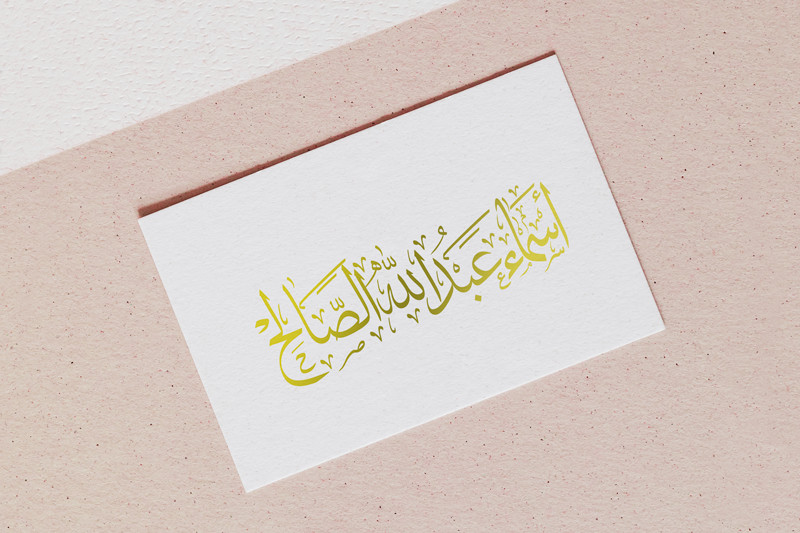 أسماء عبدالله الصالح